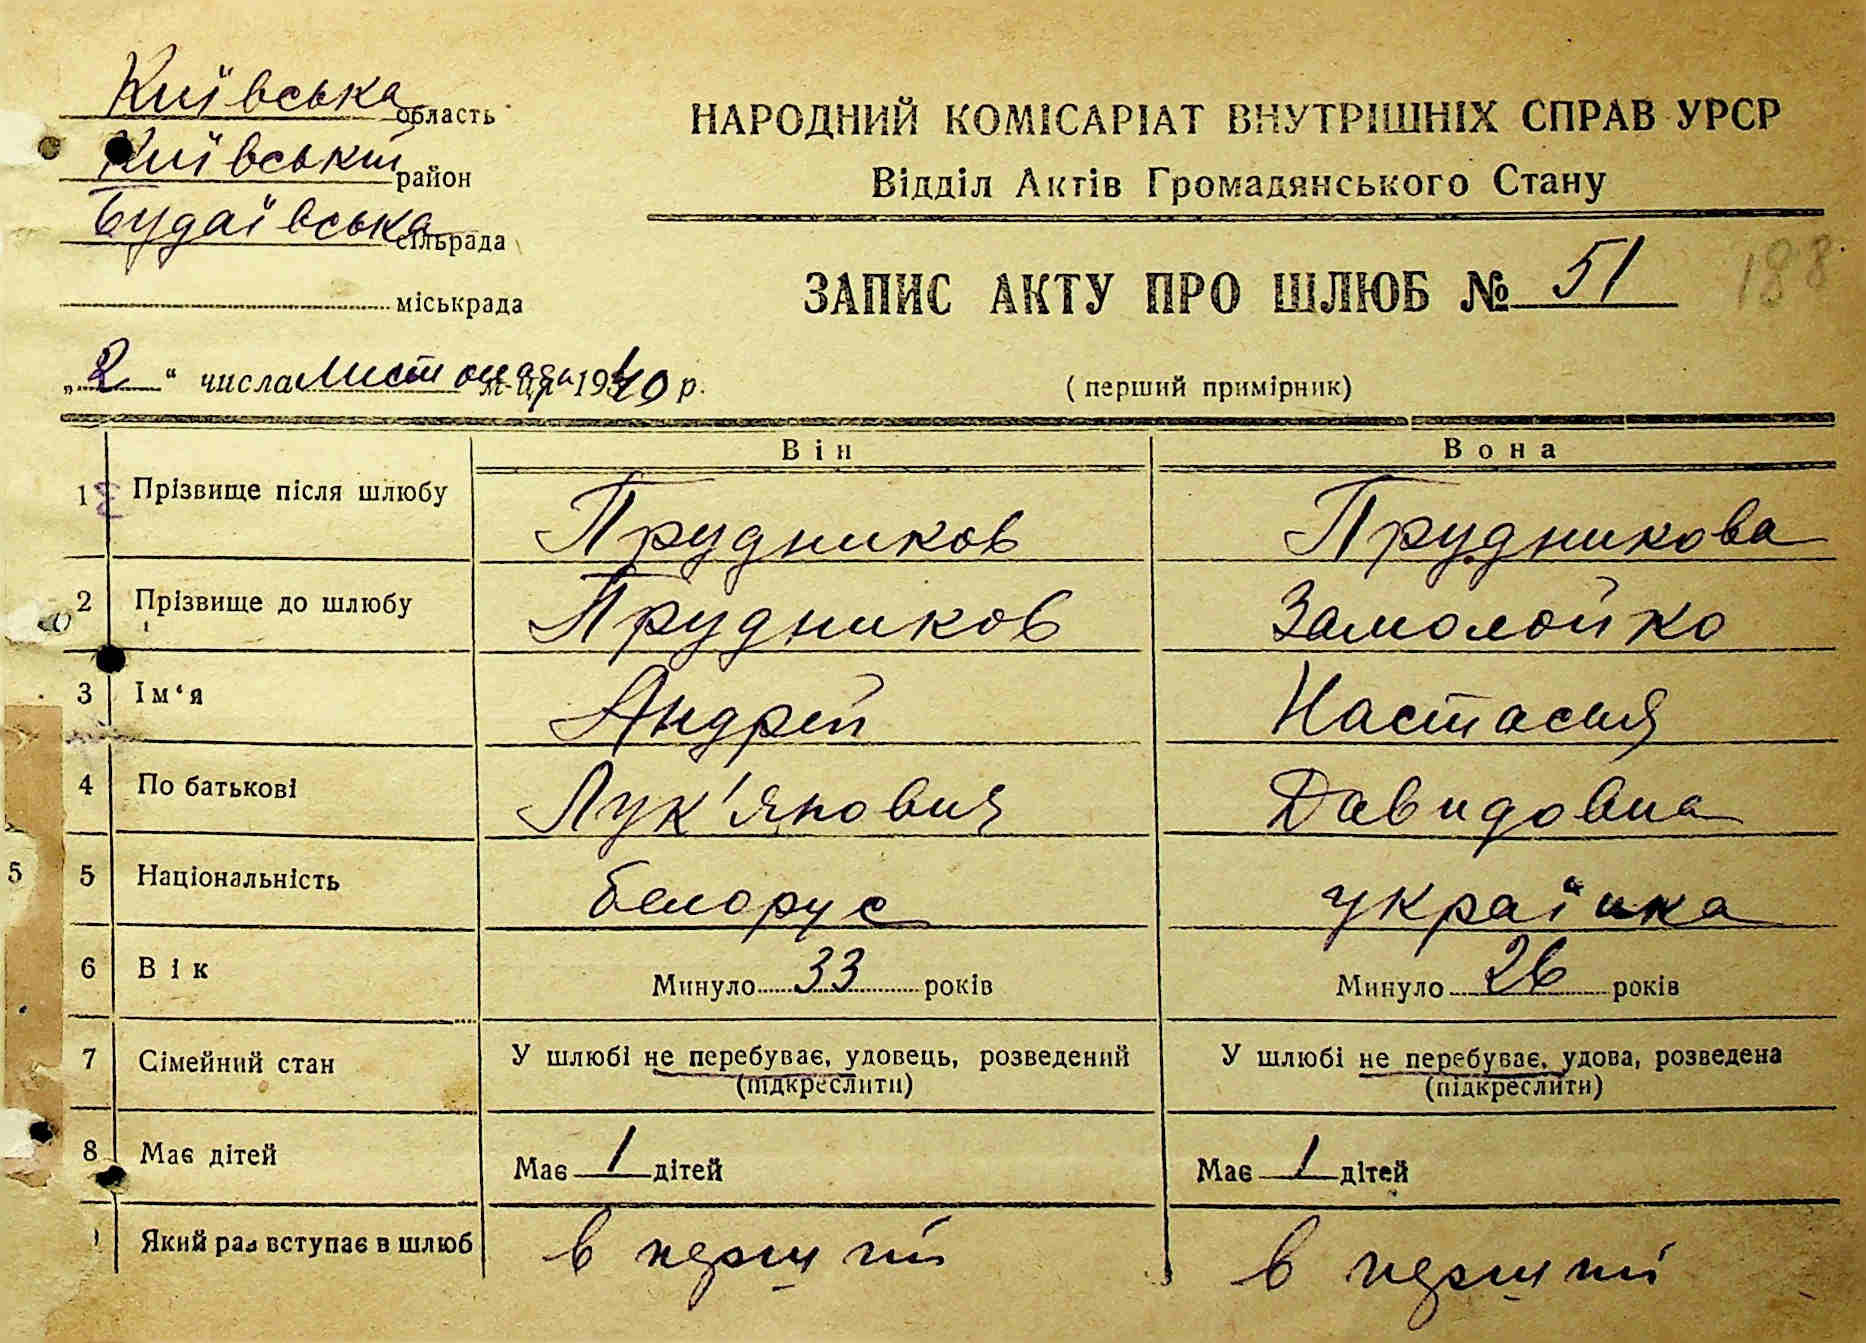 Київська область
Київський район
Будаївська сільрада
міськрада
НАРОДНИЙ КОМІСАРІАТ ВНУТРІШНІХ СПРАВ УРСР
Відділ Актів Громадянського Стану
ЗАПИС АКТУ ПРО ШЛЮБ № 51
188
„2“ числа листопада м-ця 1940 р.
(перший примірник)
Він Вона
1 Прізвище після шлюбу Прудников Прудникова
2 Прізвище до шлюбу Прудников Замолойко
3 Ім'я Андрей Настасия
4 По батькові Лук'янович Давидовна
5 5 Національність белорус українка
6 Вік Минуло 33 років Минуло 26 років
7 Сімейний стан У шлюбі не перебуває, удовець, розведений У шлюбі не перебуває, удова, розведена
(підкреслити) (підкреслити)
8 Має дітей Має 1 дітей Має 1 дітей
Який раз вступає в шлюб в перший в перший